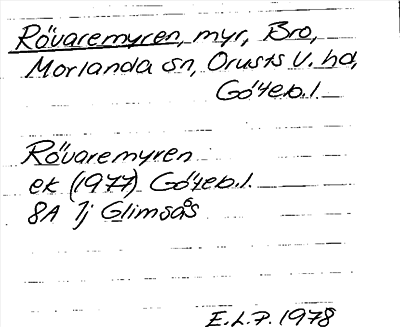 Rövaremyren, myr, Bro,
Morlanda sn, Orusts V. hd,
Göteb.l.
Rövaremyren
ek (1977) Göteb.l.
8A 1j Glimsås
E.L.P. 1978